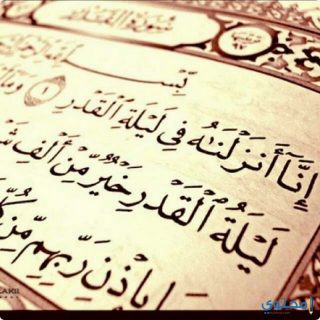 سُورَةُ الْقَدْرِ
بِسْمِ اللَّهِ الرَّحْمَٰنِ
إِنَّا أَنزَلْنَٰهُ فِي لَيْلَةِ الْقَدْرِ ١ وَمَا
لَيْلَةُ الْقَدْرِ خَيْرٌ مِّنْ أَلْفِ
بِإِذْنِ رَبِّهِم مِّن
محتوى